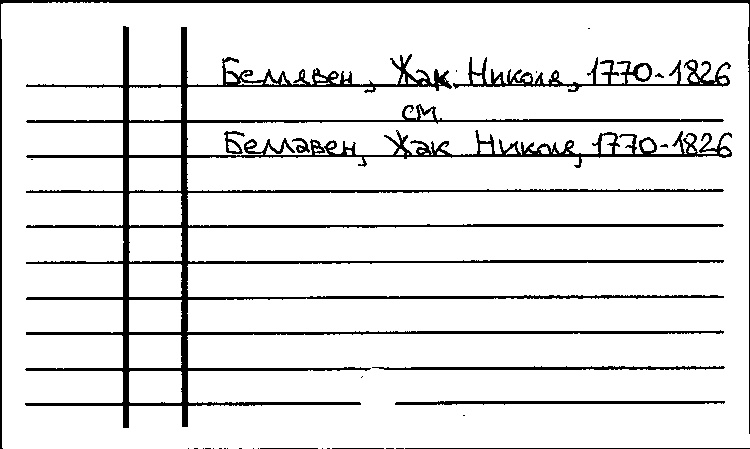 Беллявен, Жак Николя, 1770-1826
см.
Беллавен, Жак Николя, 1770-1826